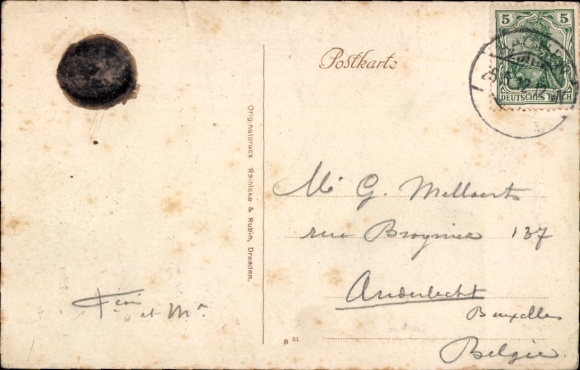 Postkarte
5 5
DEUTSCHES REICH
Originaldruck Reinicke & Rubin, Dresden.
Mr G. Mellaerts
rue 137
Anderlecht
Bruxelles
Belgie.
et Mr
B 31